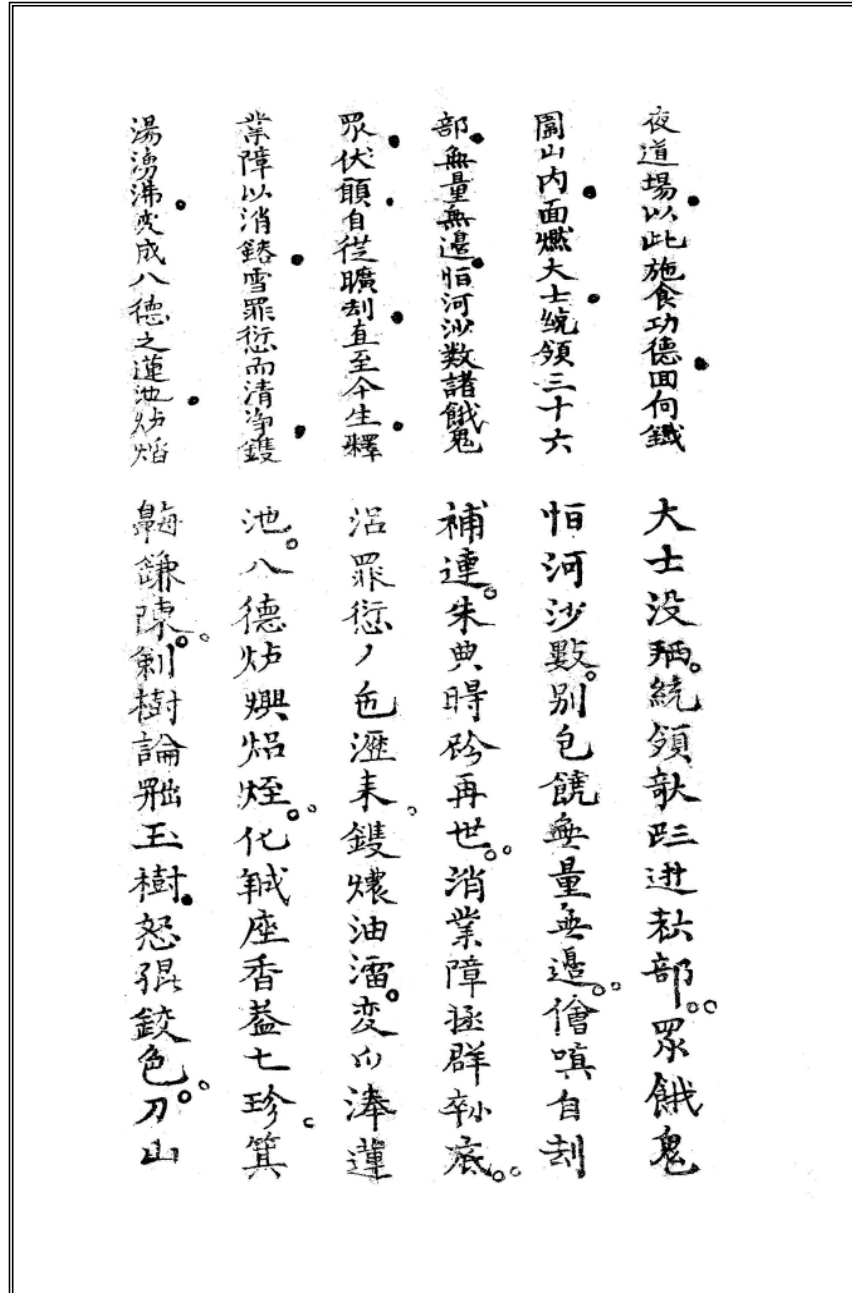 夜道場以此施食功德回向鐵
圍山内面燃大士統領三十六
部無量無邊恒河沙数諸餓鬼
眾伏願自從曠刼直至今生釋
業障以消鎔雪罪愆而清净鑊
湯湧沸变成八德之蓮池炉焰
大士没統領部眾餓鬼
恒河沙數别包饒無量無邊僧嗔自刼
補連朱典再世消業障拯群底
罪愆丿色瀝耒鑊油变蓮
池八德炉化座香蓋七珍箕
鎌陳剣樹論玉樹怒鉸色刀山